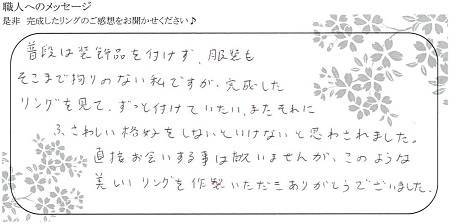 職人へのメッセージ
是非 完成したリングのご感想をお聞かせください♪
普段は装飾品を付けず、服装も
そこまで拘りのない私ですが、完成した
リングを見て、ずっと付けていたい、またそれに
ふさわしい格好をしないといけないと思わされました。
直接お会いする事は叶いませんが、このような
美しいリングを作製いただきありがとうございました。